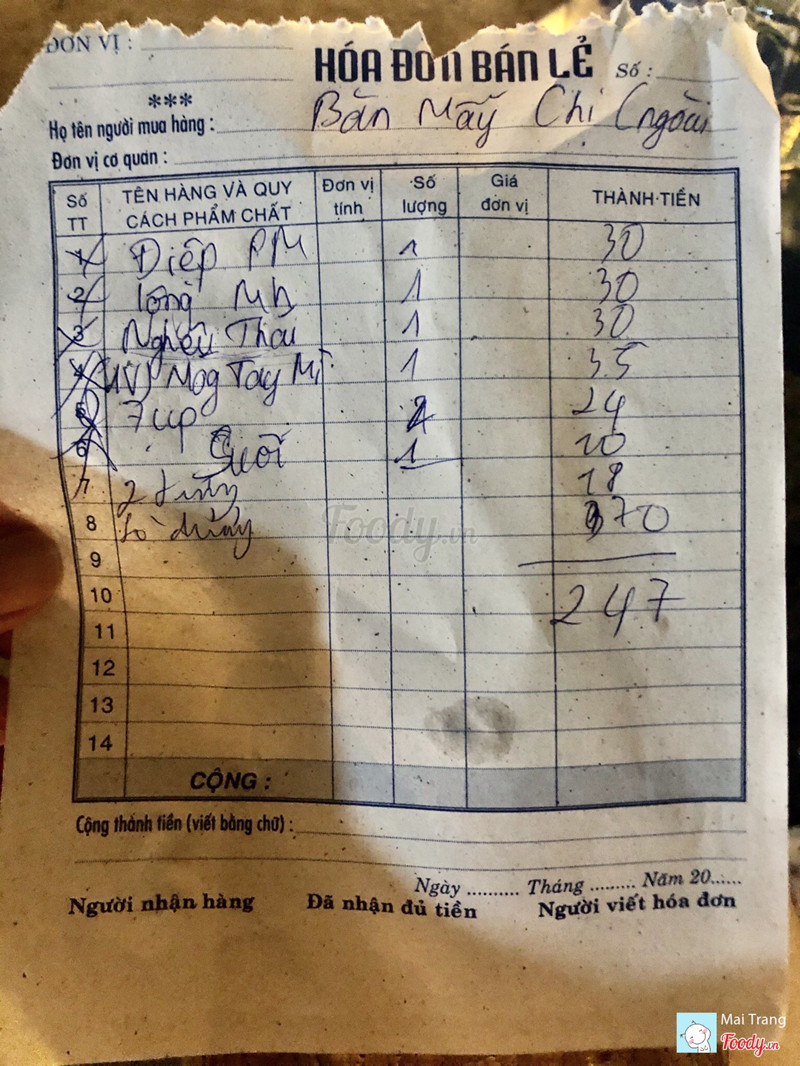 ĐƠN VỊ :
HÓA ĐƠN BÁN LẺ Số :
***
Họ tên người mua hàng : Bàn Mấy Chị (ngoài
Đơn vị cơ quan :
Số TT TÊN HÀNG VÀ QUY CÁCH PHẨM CHẤT Đơn vị tính Số lượng Giá đơn vị THÀNH TIỀN
1 Điệp PM 1 30
2 lông Mh 1 30
3 Nghêu Thái 1 30
4 Mog Tay Mì 1 35
5 7up 2 24
6 Suối 1 10
7 2 18
8 Sò 70
9
10 247
11
12
13
14
CỘNG :
Cộng thành tiền (viết bằng chữ) :
Ngày .......... Tháng ......... Năm 20......
Người nhận hàng Đã nhận đủ tiền Người viết hóa đơn
Foody.vn
Mai Trang
Foody.vn